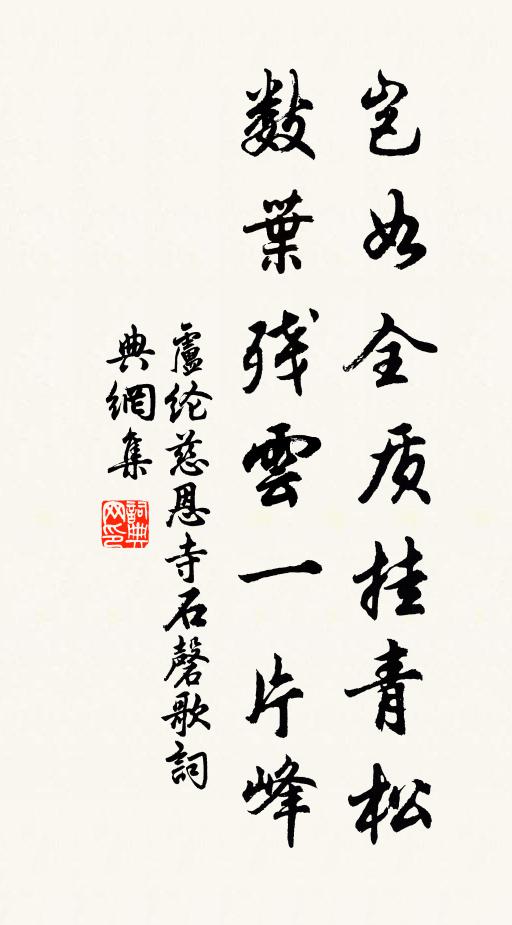 岂如全质挂青松
數葉残雲一片峰
盧纶慈恩寺石磬歌詞
典網集
詞典
网印